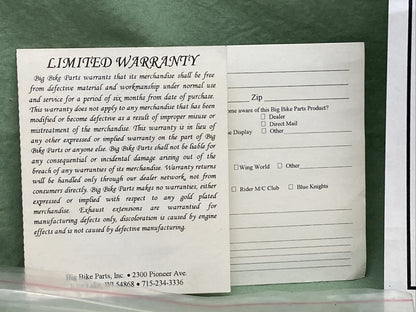 LIMITED WARRANTY
Big Bike Parts warrants that its merchandise shall be free
from defective material and workmanship under normal use
and service for a period of six months from date of purchase.
This warranty does not apply to any merchandise that has been
modified or become defective as a result of improper misuse or
mistreatment of the merchandise. This warranty is in lieu of
any other expressed or implied warranty on the part of Big
Bike Parts or anyone else. Big Bike Parts shall not be liable for
any consequential or incidental damage arising out of the
breach of any warranties of its merchandise. Warranty returns
will be handled only through our dealer network, not from
consumers directly. Big Bike Parts makes no warranties, either
expressed or implied with respect to any gold plated
merchandise. Exhaust extensions are warrantied for
manufacturing defects only, discoloration is caused by engine
effects and is not caused by defective manufacturing.
Big Bike Parts, Inc. • 2300 Pioneer Ave.
WI 54868 • 715-234-3336
Zip
aware of this Big Bike Parts Product?
Dealer
Direct Mail
Display Other
Wing World Other
Rider M/C Club Blue Knights